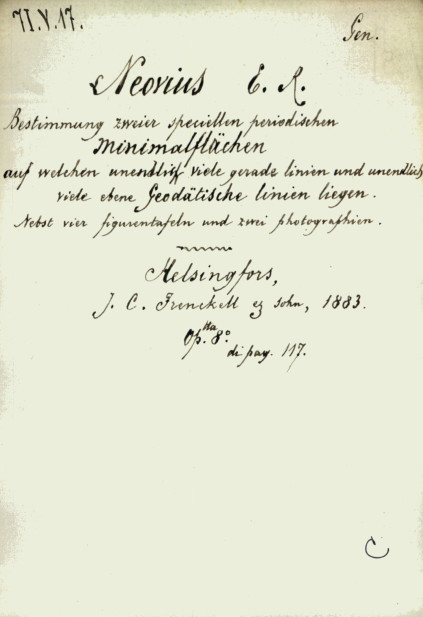 71.V.17.
Gen.
Neovius E. R.
Bestimmung zweier speciellen periodischen
Minimalflächen
auf welchen unendlich viele gerade linien und unendlich
viele ebene Geodätische linien liegen.
Nebst vier figurentafeln und zwei photographien.
Helsingfors,
J. C. Frenckell & Sohn, 1883.
Op.lo 8°
di pag. 117.
C